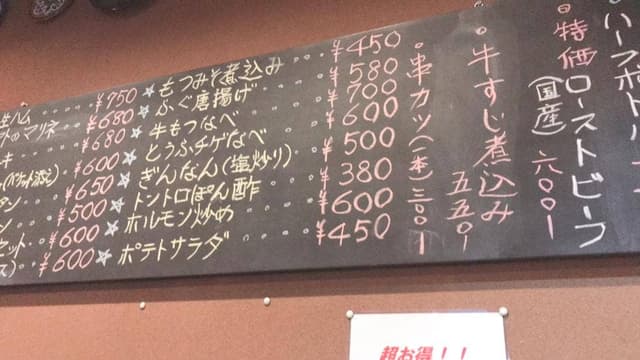 ハーフボトル
◎特価ローストビーフ
(国産) 六〇〇ー
◦牛すじ煮込み
五五〇ー
◦串カツ(一本)三〇〇ー
☆もつみそ煮込み ¥450
☆ふぐ唐揚げ ¥580
☆牛もつなべ ¥700
☆とうふチゲなべ ¥600
☆ぎんなん(塩炒り) ¥500
☆トントロぽん酢 ¥380
☆ホルモン炒め ¥600
☆ポテトサラダ ¥450
生ハム ¥750
トのマリネ ¥680
キ ¥680
(バケット添え) ¥600
タン ¥650
ン ¥500
セット ¥600
ス) ¥600
超お得！！